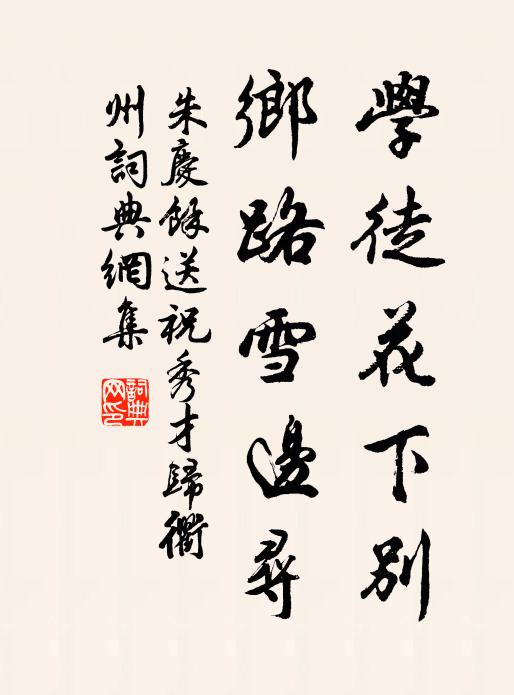 學徒花下別
鄉路雪邊尋
朱慶餘送祝秀才歸衢
州詞典網集
詞典
网印